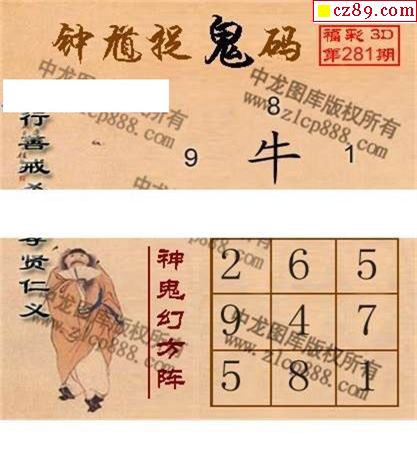 cz89.com
钟馗捉鬼码
福彩 3D
第281期
行善戒
8
9 牛 1
尊贤仁义
神鬼幻方阵
2 6 5
9 4 7
5 8 1
中龙图库版权所有
www.zlcp888.com
中龙图库版权所有
www.zlcp888.com